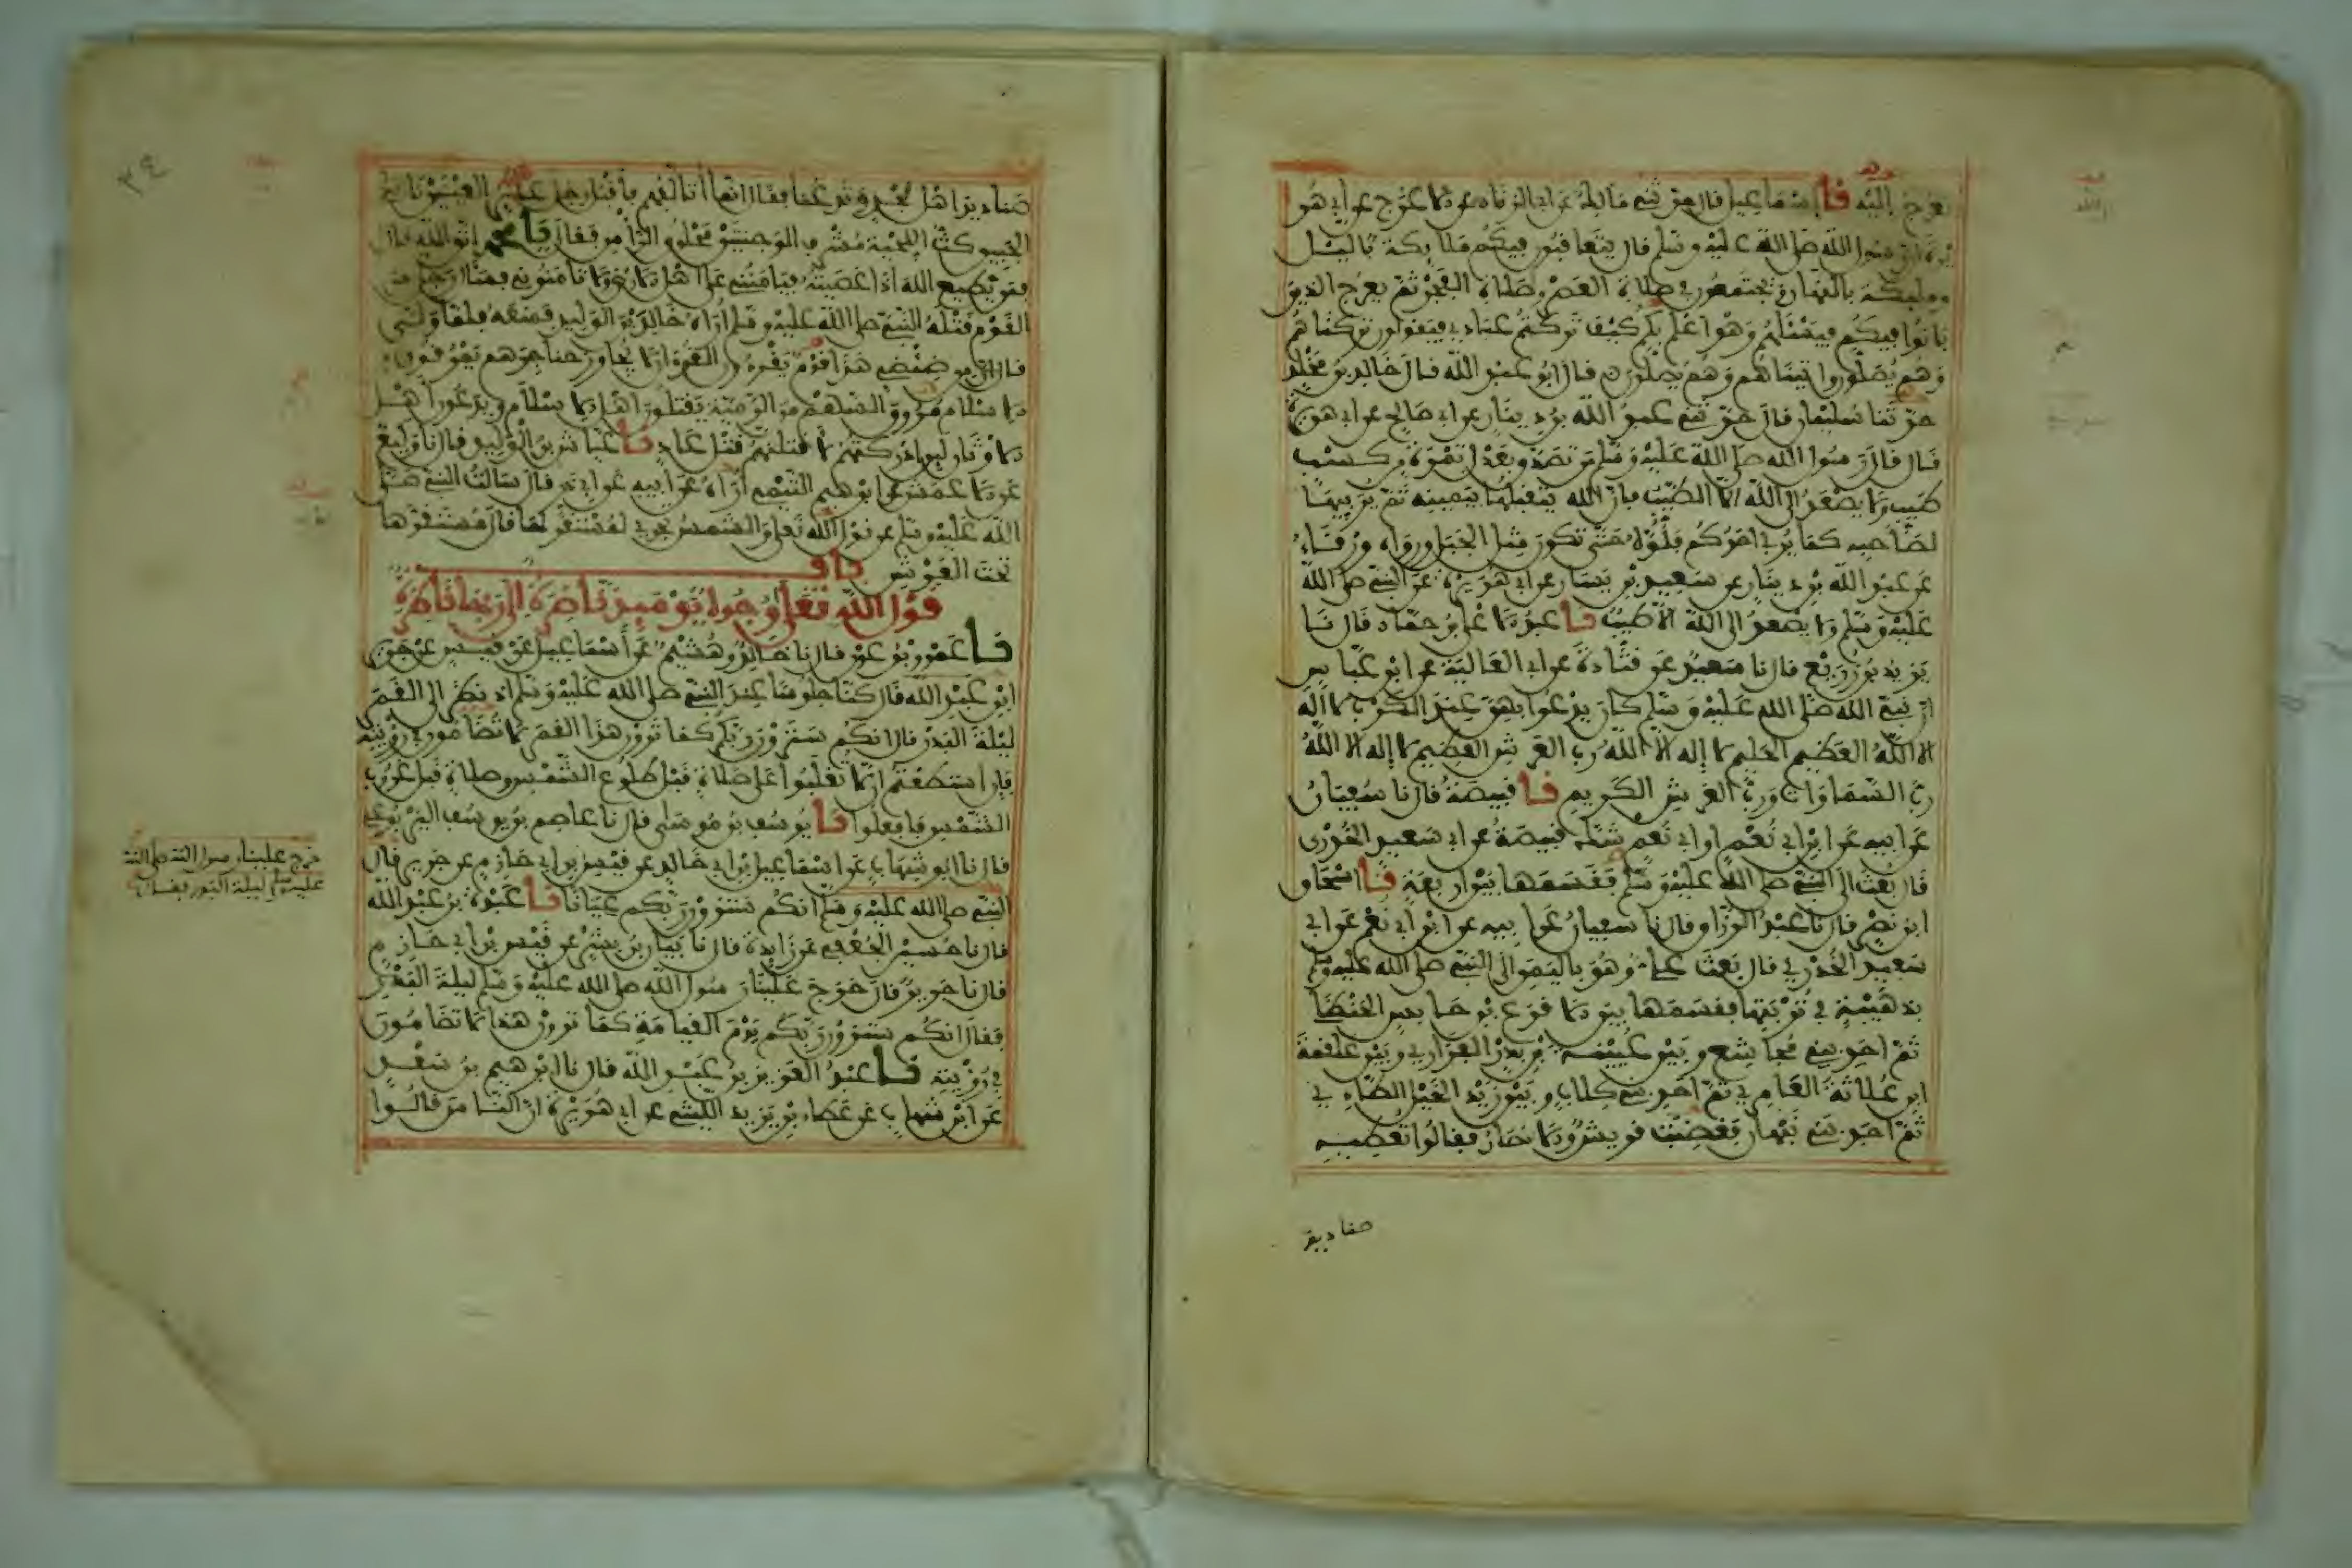 تعرج إليه نا إسماعيل قال حدثني مالك عن أبي الزناد عن الاعرج عن أبي هر
يرة أن رسول الله صلى الله عليه وسلم قال يتعاقبون فيكم ملائكة بالليل
وملائكة بالنهار ويجتمعون في صلاة العصر وصلاة الفجر ثم يعرج الذين
باتوا فيكم فيسئلهم وهو أعلم بكم كيف تركتم عبادي فيقولون تركناهم
وهم يصلون وأتيناهم وهم يصلون قال أبو عبد الله قال خالد بن مخلد
حدثنا سليمان قال حدثني عبد الله بن دينار عن أبي صالح عن أبي هريرة
قال قال رسول الله صلى الله عليه وسلم من تصدق بعدل تمرة من كسب
طيب ولا يصعد إلى الله إلا الطيب فإن الله يتقبلها بيمينه ثم يربيها
لصاحبه كما يربي أحدكم فلوه حتى تكون مثل الجبل ورواه ورقاء
عن عبد الله بن دينار عن سعيد بن يسار عن أبي هريرة عن النبي صلى الله
عليه وسلم ولا يصعد إلى الله إلا طيب نا عبد الاعلى بن حماد قال نا
يزيد بن زريع قال نا سعيد عن قتادة عن أبي العالية عن ابن عباس
أن نبي الله صلى الله عليه وسلم كان يدعوا بهن عند الكرب لا إله
إلا الله العظيم الحليم لا إله إلا الله رب العرش العظيم لا إله إلا الله
رب السماوات ورب العرش الكريم نا قبيصة قال نا سفيان
عن أبيه عن ابن أبي نعم أو أبي نعم شك قبيصة عن أبي سعيد الخدري
قال بعث إلى النبي صلى الله عليه وسلم فقسمها بين أربعة نا اسحاق
ابن نصر قال نا عبد الرزاق قال نا سفيان عن أبيه عن ابن أبي نعم عن أبي
سعيد الخدري قال بعث علي وهو باليمن إلى النبي صلى الله عليه وسلم
بذهيبة في تربتها فقسمها بين الاقرع بن حابس الحنظلي
ثم أحد بني مجاشع وبين عيينة بن بدر الفزاري وبين علقمة
ابن علاثة العامري ثم أحد بني كلاب وبين زيد الخيل الطاءي
ثم أحد بني نبهان فغضبت قريش والانصار فقالوا تعطيه
صناديد
صناديد أهل نجد وتدعنا فقال انما أتالفهم فأقبل رجل غاير العينين ناتئ
الجبين كث اللحية مشرف الوجنتين محلوق الرأس فقال يا محمد إتق الله قال
فمن يطيع الله إذا عصيته فيامنني على أهل الارض ولا تامنوني فسأل رجل من
القوم قتله النبي صلى الله عليه وسلم أراه خالد بن الوليد فمنعه فلما ولى
قال إن من ضئضئ هذا قوم يقرءون القرءان لا يجاوز حناجرهم يمرقون من
الاسلام مروق السهم من الرمية يقتلون أهل الاسلام ويدعون أهل
الاوثان لين أدركتهم لاقتلنهم قتل عاد نا عياش بن الوليد قال نا وكيع
عن الاعمش عن ابرهيم التيمي أراه عن أبيه عن أبي ذر قال سالت النبي صلى
الله عليه وسلم عن قول الله تعلى والشمس تجري لمستقر لها قال مستقرها
تحت العرش باب
قول الله تعلى وجوه يومئذ ناضرة إلى ربها ناظرة
نا عمرو بن عون قال نا خالد وهشيم عن أسماعيل عن قيس عن جرير
ابن عبد الله قال كنا جلوسا عند النبي صلى الله عليه وسلم إذ نظر إلى القمر
ليلة البدر قال انكم سترون ربكم كما ترون هذا القمر لا تضامون في رؤيته
فإن استطعتم أن لا تغلبوا على صلاة قبل طلوع الشمس وصلاة قبل غروب
الشمس فافعلوا نا يوسف بن موسى قال نا عاصم بن يوسف اليربوعي
قال نا أبو شهاب عن اسماعيل بن أبي خالد عن قيس بن أبي حازم عن جرير قال
النبي صلى الله عليه وسلم انكم سترون ربكم عيانا نا عبدة بن عبد الله
قال نا حسين الجعفي عن زايدة قال نا بيان بن بشر عن قيس بن أبي حازم
قال نا جرير قال خرج علينا رسول الله صلى الله عليه وسلم ليلة البدر
فقال انكم سترون ربكم يوم القيامة كما ترون هذا لا تضامون
في رؤيته نا عبد العزيز بن عبد الله قال نا ابرهيم بن سعد
عن ابن شهاب عن عطاء بن يزيد الليثي عن أبي هريرة أن الناس قالوا
خرج علينا رسول الله صلى الله
عليه وسلم ليلة البدر فقال
٣٤